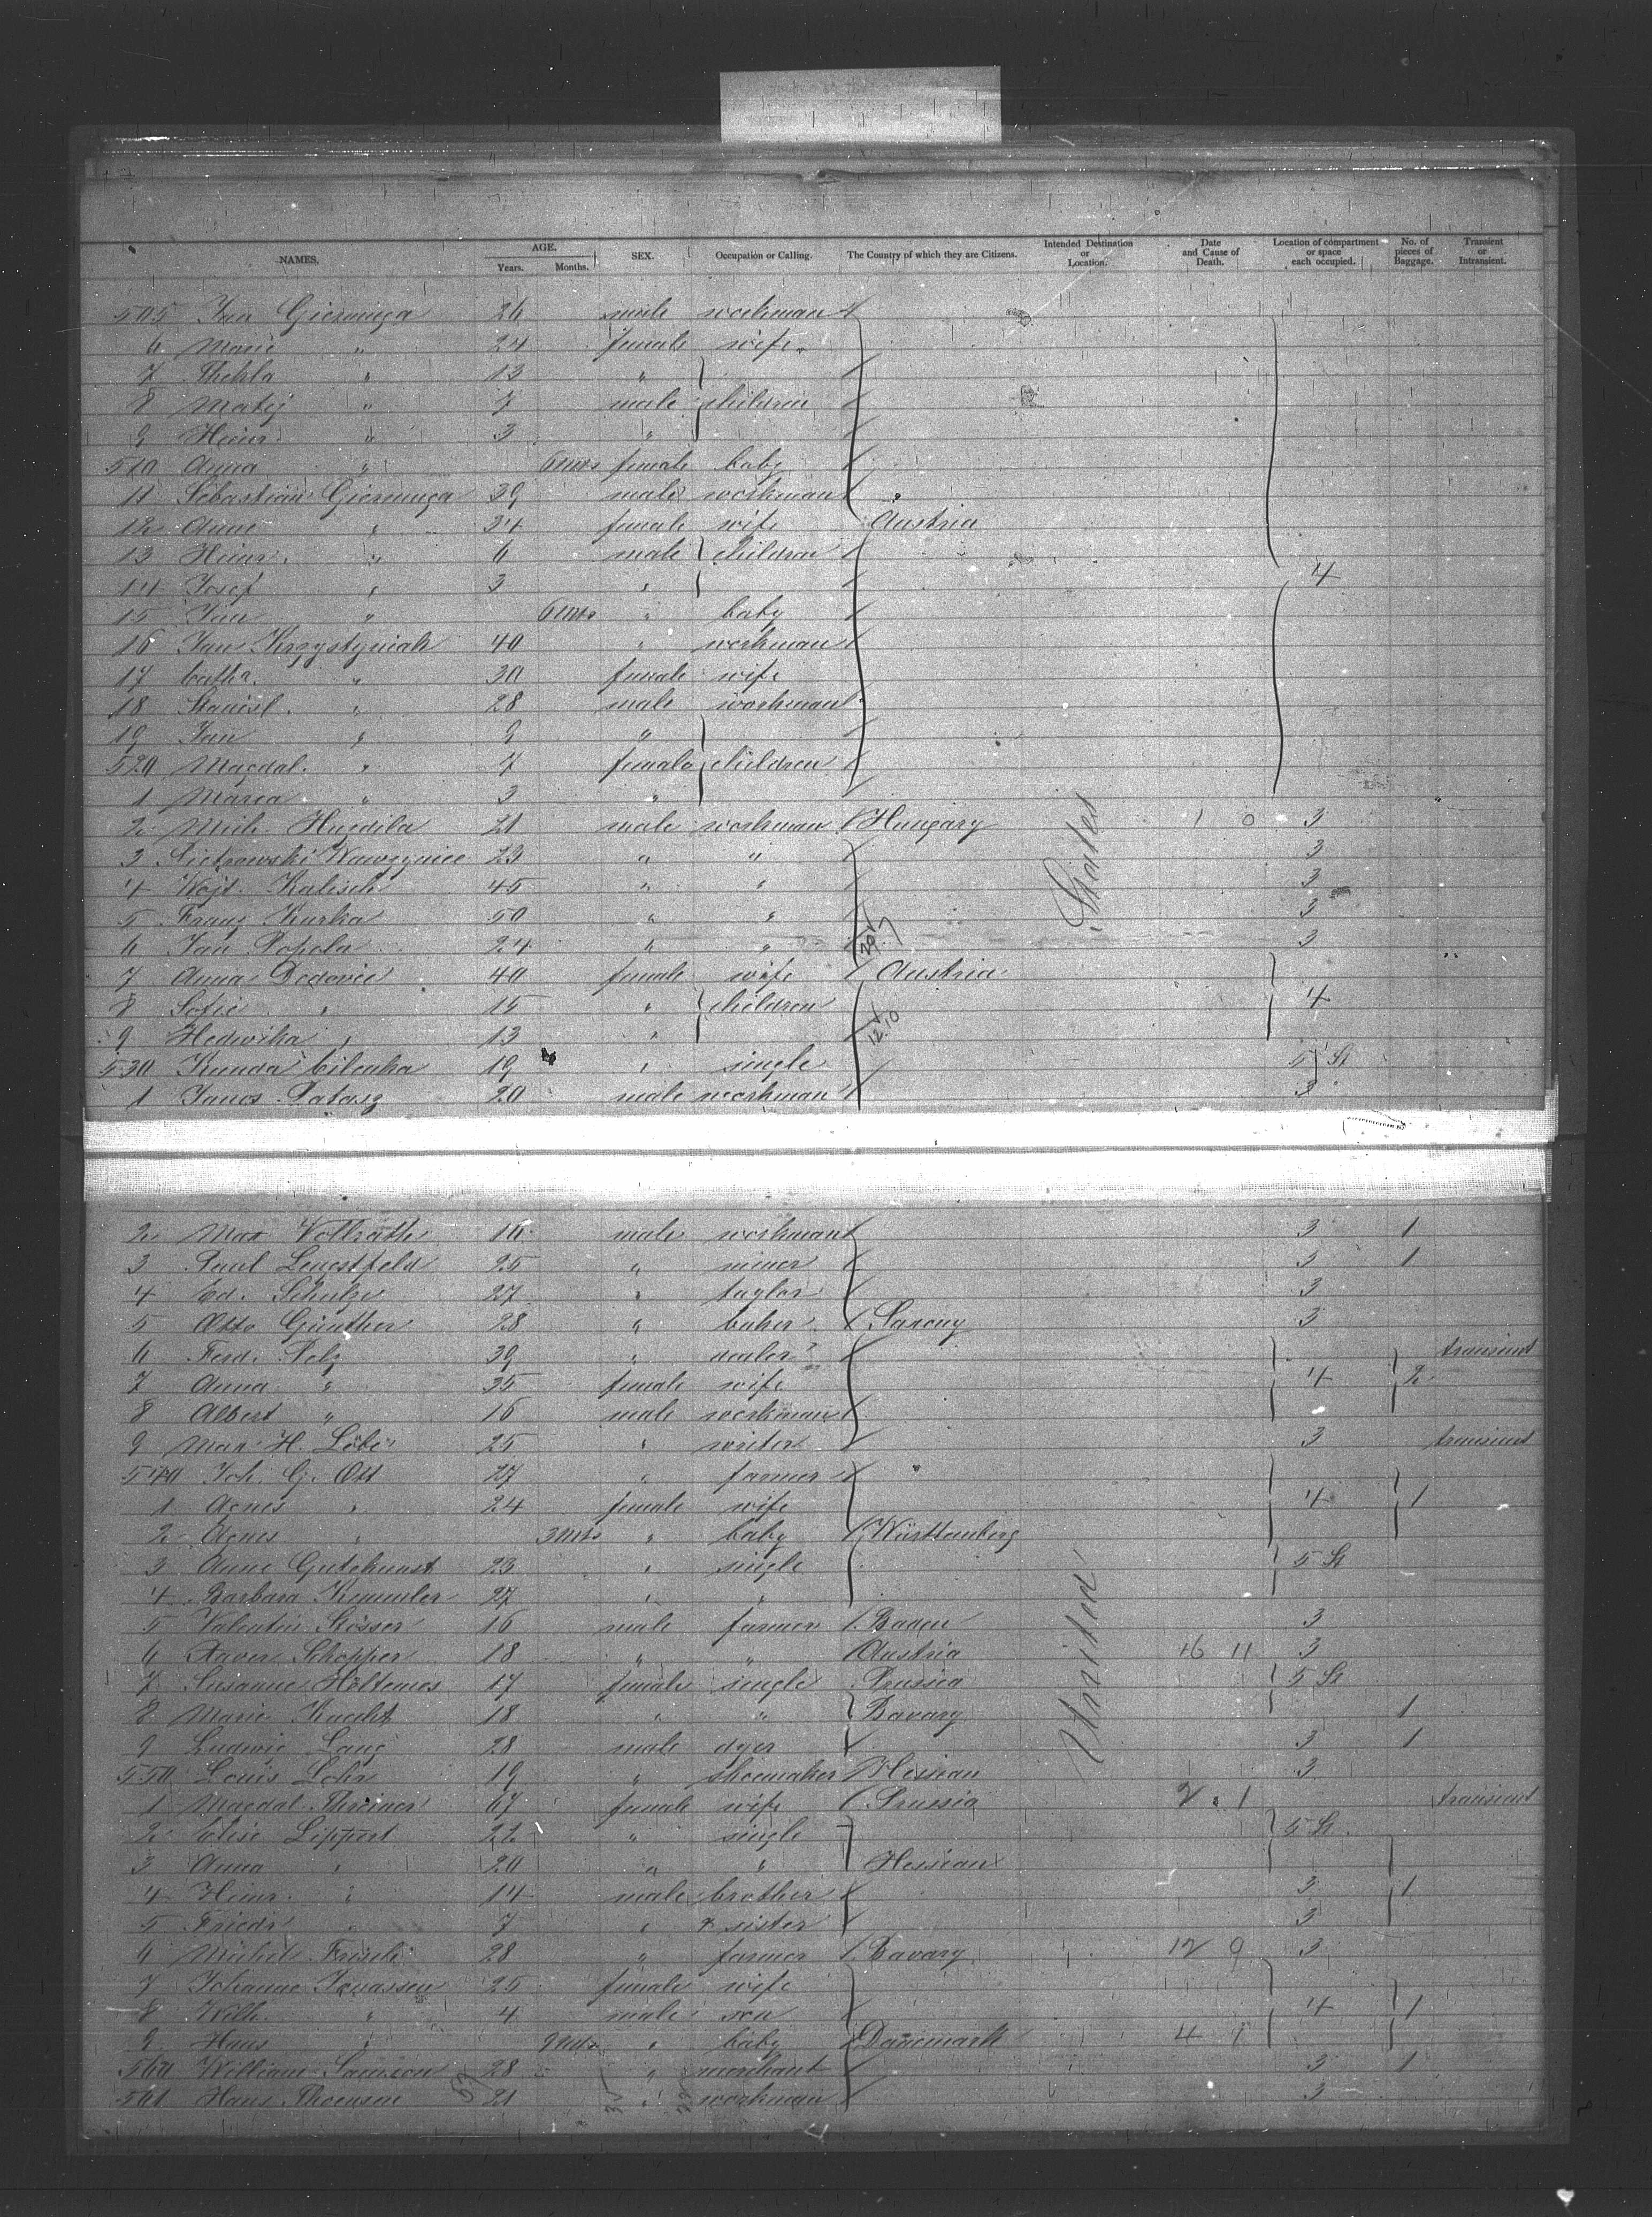 NAMES. AGE. Years. Months. SEX. Occupation or Calling. The Country of which they are Citizens. Intended Destination or Location. Date and Cause of Death. Location of compartment or space each occupied. No. of pieces of Baggage. Transient or Intransient.
505 Jan 26 male workman
6 Marie " 24 female wife
7 Thekla " 13 "
8 Matij " 7 male children
9 Heinr. " 3 "
510 Anna " 6 mts female baby
11 Sebastian 39 male workman
12 Anne " 34 female wife Austria
13 Heinr. " 6 male children
14 Josef " 3 " 4
15 Jan " 6 mts " baby
16 Jan Krzystyniak 40 " workman
17 Cathr. " 30 female wife
18 Stanisl. " 28 male workman
19 Jan " 9 "
520 Magdal. " 7 female children
1 Maria " 3 "
2 Mich. Hugdila 21 male workman Hungary 1 0 3
3 Pietrowski 23 " " 3
4 Wojt. Kalisch 45 " " 3
5 Franz Kurka 50 " " 3
6 Jan Popela 24 " " 3
7 Anna 40 female wife Austria
8 Sofie " 15 " children 4
9 Hedwika " 13 "
530 Kunda 19 " single 5 St
1 Janos 20 male workman 3
States
2 Max Vollrath 16 male workman 3 1
3 Paul 25 " miner 3 1
4 Ed. Schulze 27 " taylor 3
5 Otto Günther 28 " baker Saxony 3
6 Ferd. Pelz 39 " dealer transient
7 Anna " 35 female wife 4 2
8 Albert " 16 male workman
9 Max H. Löbe 25 " writer 3 transient
540 Joh. G. Ott 27 " farmer
1 Agnes " 24 female wife 4 1
2 Agnes " 3 mts " baby Württemberg
3 Anne Gutekunst 23 " single 5 St
4 Barbara Kemmler 27 " "
5 Valentin Stösser 16 male farmer Baden 3
6 Xaver Schopper 18 " " Austria 16 11 3
7 Susanne Höltemes 17 female single Prussia 5 St
8 Marie Knecht 18 " " Bavary 1
9 Ludwig Lang 28 male dyer 3 1
550 Louis Lohr 19 " shoemaker Hessian 3
1 Magdal. 67 female wife Prussia 2 1 transient
2 Elise Lippert 22 " single 5 St
3 Anna " 20 " " Hessian
4 Heinr. " 14 male brother 3 1
5 Friedr. " 7 " & sister 3
6 Michel 28 " farmer Bavary 12 9 3
7 Johanne 25 female wife
8 Wilh. " 4 male son 4 1
9 Hans " 9 mts " baby Danemark 4 1
560 William Samson 28 " merchant 3 1
561 Hans Thomsen 21 " workman 3
United